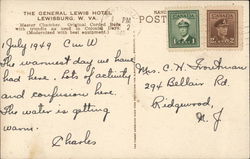 THE GENERAL LEWIS HOTEL
LEWISBURG, W. VA.
Master Chamber. Original Corded Beds
with trundle as used in Colonial Days.
(Modernized with best equipment.)
PM
POST
CANADA
CANADA
July 1949 C W
The warmest day we have
had here. Lots of activity
and confusion here.
The water is getting
warm.
Charles
Mrs. C. H. Troutman
294 Bellair Rd.
Ridgewood,
N. J